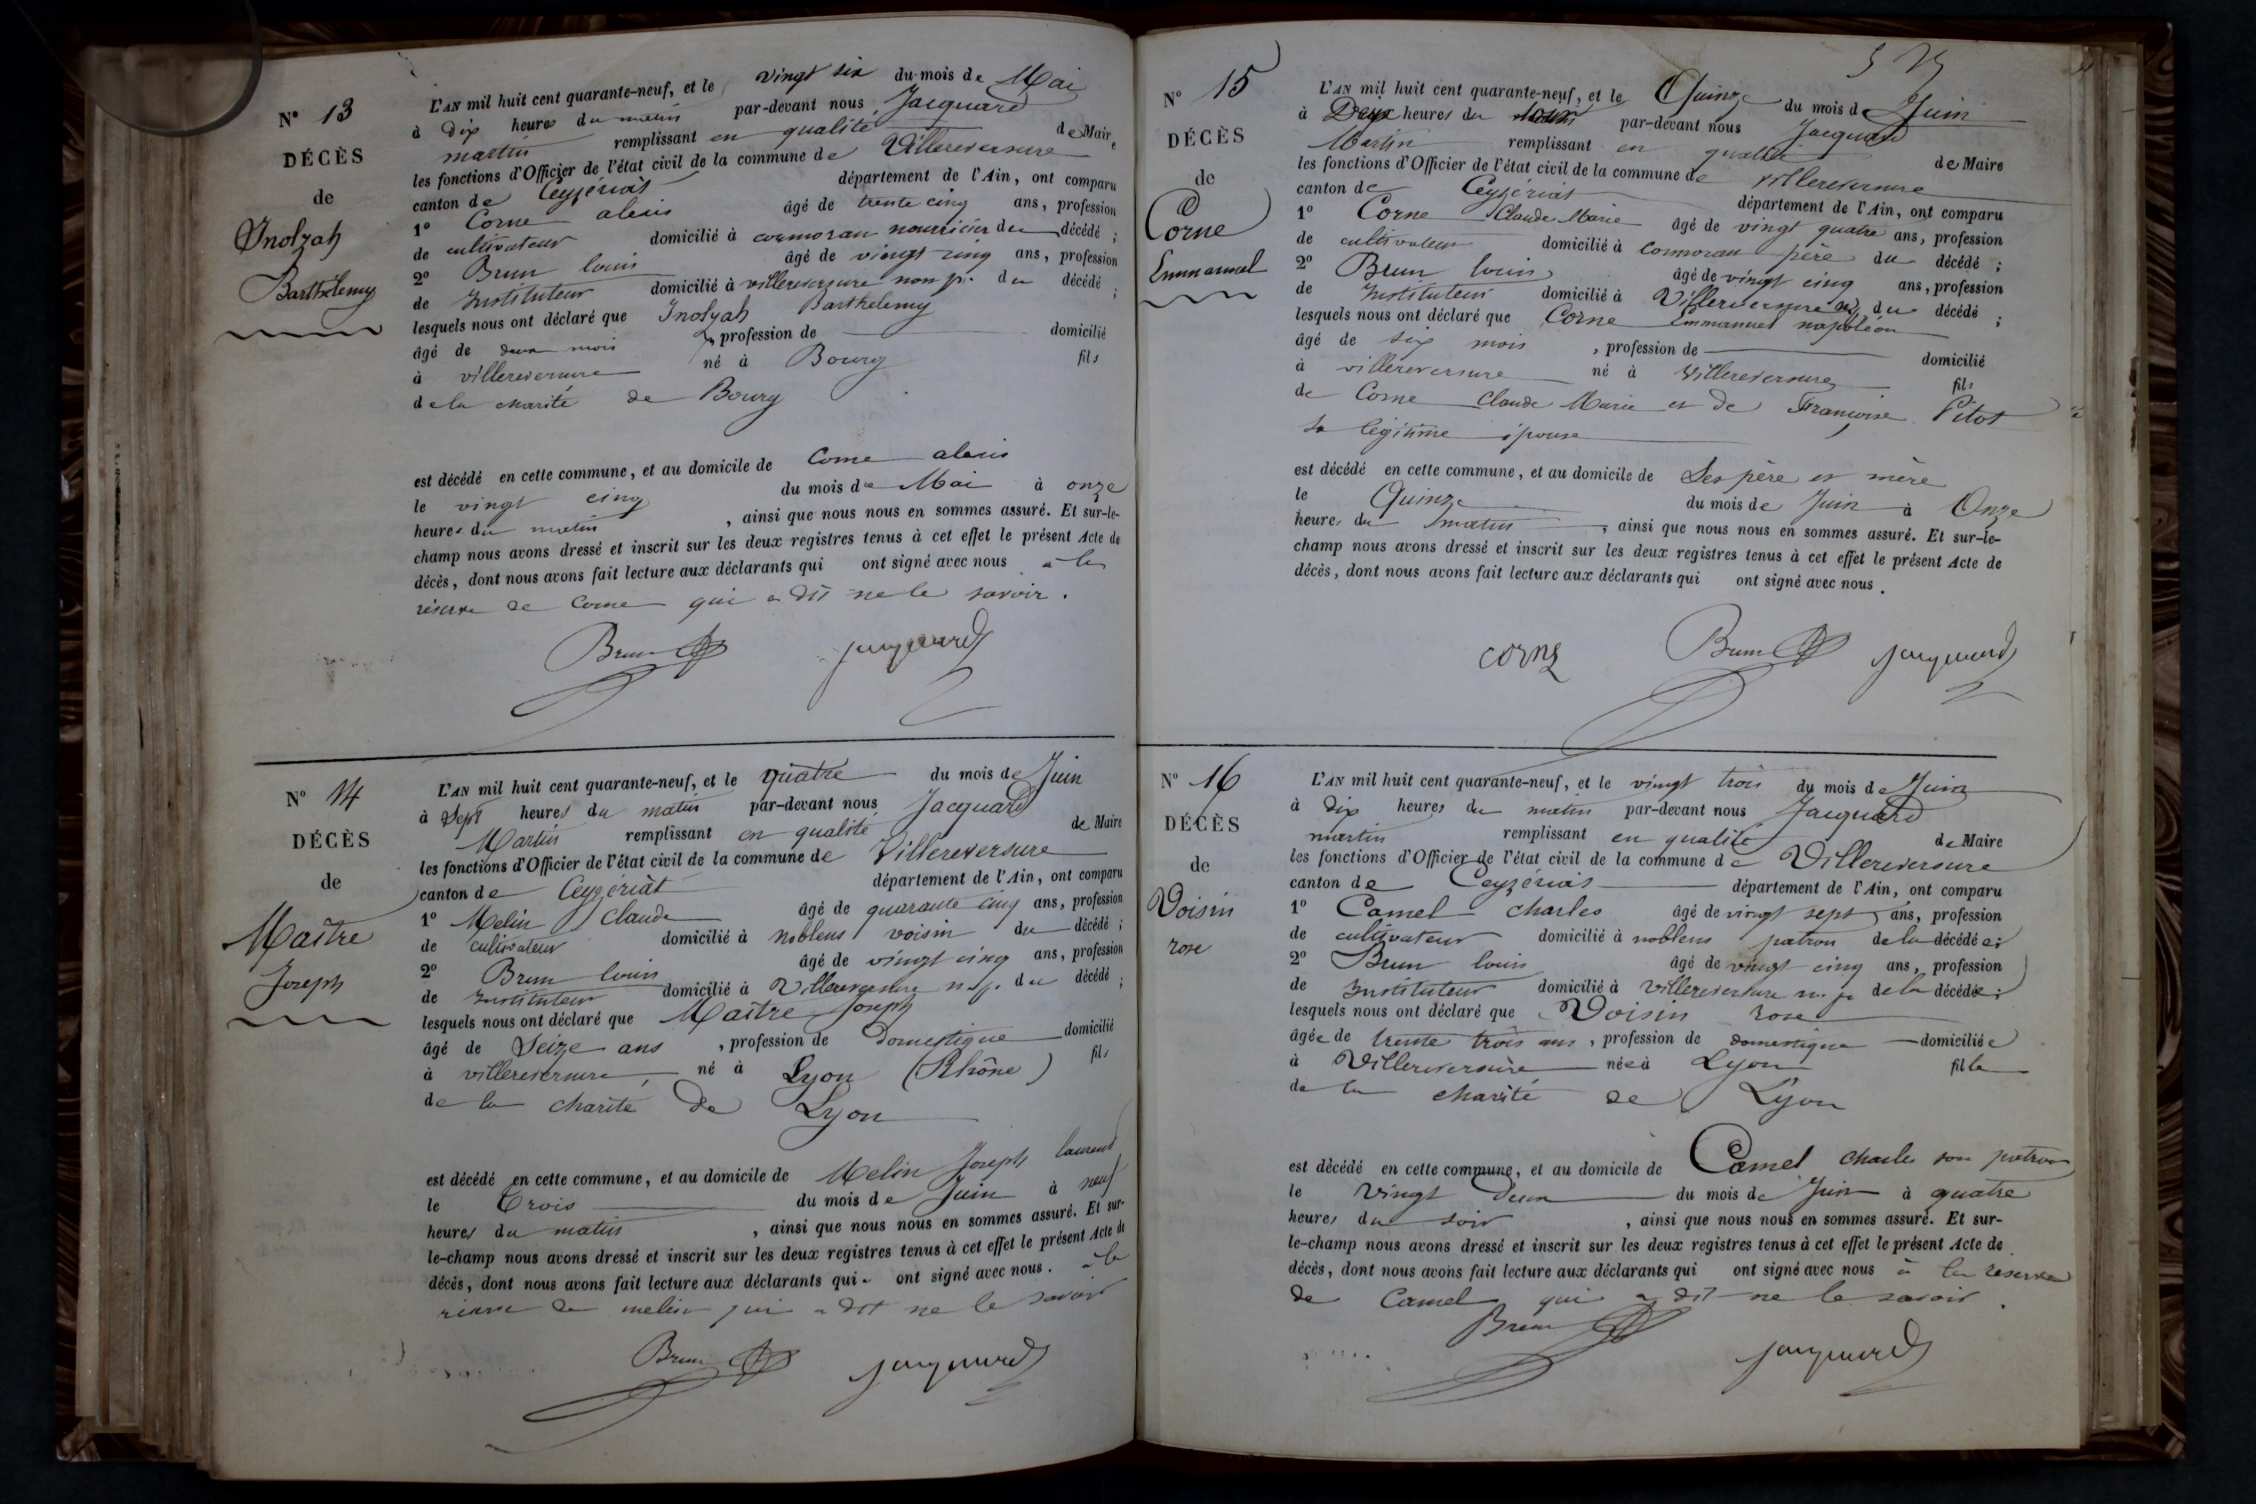 N° 13
DÉCÈS
de
Inolzah
Barthélemy
L'AN mil huit cent quarante-neuf, et le vingt six du mois de Mai
à Dix heures du matin par-devant nous Jacquard
martin remplissant en qualité de Maire
les fonctions d'Officier de l'état civil de la commune de Villereversure
canton de Ceyzériat département de l'Ain, ont comparu
1° Corne alexis âgé de trente cinq ans, profession
de cultivateur domicilié à cormoran nourricier du décédé ;
2° Brun louis âgé de vingt cinq ans, profession
de Instituteur domicilié à villereversure non p. du décédé ;
lesquels nous ont déclaré que Inolzah Barthelemy
âgé de deux mois , profession de domicilié
à villereversure né à Bourg fils
de la charité de Bourg
est décédé en cette commune, et au domicile de Corne alexis
le vingt cinq du mois de Mai à onze
heures du matin , ainsi que nous nous en sommes assuré. Et sur-le-
champ nous avons dressé et inscrit sur les deux registres tenus à cet effet le présent Acte de
décès, dont nous avons fait lecture aux déclarants qui ont signé avec nous a la
réserve de Corne qui a dit ne le savoir .
Brun Jacquard
N° 14
DÉCÈS
de
Maître
Joseph
L'AN mil huit cent quarante-neuf, et le quatre du mois de Juin
à Sept heures du matin par-devant nous Jacquard
Martin remplissant en qualité de Maire
les fonctions d'Officier de l'état civil de la commune de Villereversure
canton de Ceyzériat département de l'Ain, ont comparu
1° Melin Claude âgé de quarante cinq ans, profession
de cultivateur domicilié à noblens voisin du décédé ;
2° Brun louis âgé de vingt cinq ans, profession
de Instituteur domicilié à Villereversure n. p. du décédé ;
lesquels nous ont déclaré que Maître Joseph
âgé de Seize ans , profession de domestique domicilié
à villereversure, né à Lyon (Rhône) fils
de la charité de Lyon
est décédé en cette commune, et au domicile de Melin Joseph laurent
le Trois du mois de Juin à neuf
heures du matin , ainsi que nous nous en sommes assuré. Et sur-
le-champ nous avons dressé et inscrit sur les deux registres tenus à cet effet le présent Acte de
décès, dont nous avons fait lecture aux déclarants qui ont signé avec nous . a la
réserve de melin qui a dit ne le savoir
Brun Jacquard
N° 15
DÉCÈS
de
Corne
Emmanuel
L'AN mil huit cent quarante-neuf, et le Quinze du mois de Juin
à Deux heures du par-devant nous Jacquard
Martin remplissant en qualité de Maire
les fonctions d'Officier de l'état civil de la commune de villereversure
canton de Ceyzériat département de l'Ain, ont comparu
1° Corne Claude Marie âgé de vingt quatre ans, profession
de cultivateur domicilié à cormoran père du décédé ;
2° Brun louis âgé de vingt cinq ans, profession
de Instituteur domicilié à Villereversure du décédé ;
lesquels nous ont déclaré que Corne Emmanuel napoléon
âgé de six mois , profession de domicilié
à villereversure né à Villereversure fils
de Corne Claude Marie et de Françoise Pitot
sa légitime épouse
est décédé en cette commune, et au domicile de Ses père et mère
le Quinze du mois de Juin à Onze
heures du matin , ainsi que nous nous en sommes assuré. Et sur-le-
champ nous avons dressé et inscrit sur les deux registres tenus à cet effet le présent Acte de
décès, dont nous avons fait lecture aux déclarants qui ont signé avec nous .
corne Brun Jacquard
N° 16
DÉCÈS
de
Voisin
rose
L'AN mil huit cent quarante-neuf, et le vingt trois du mois de Juin
à dix heures du matin par-devant nous Jacquard
martin remplissant en qualité de Maire
les fonctions d'Officier de l'état civil de la commune de Villereversure
canton de Ceyzériat département de l'Ain, ont comparu
1° Camel charles âgé de vingt sept ans, profession
de cultivateur domicilié à noblens patron de la décédée ;
2° Brun louis âgé de vingt cinq ans, profession
de Instituteur domicilié à villereversure n. p. de la décédée ;
lesquels nous ont déclaré que Voisin rose
âgée de trente trois ans , profession de domestique domiciliée
à Villereversure née à Lyon fille
de la charité de Lyon
est décédé en cette commune, et au domicile de Camel Charles son patron
le Vingt deux du mois de Juin à quatre
heures du soir , ainsi que nous nous en sommes assuré. Et sur-
le-champ nous avons dressé et inscrit sur les deux registres tenus à cet effet le présent Acte de
décès, dont nous avons fait lecture aux déclarants qui ont signé avec nous à la reserve
de Camel qui a dit ne le savoir .
Brun Jacquard